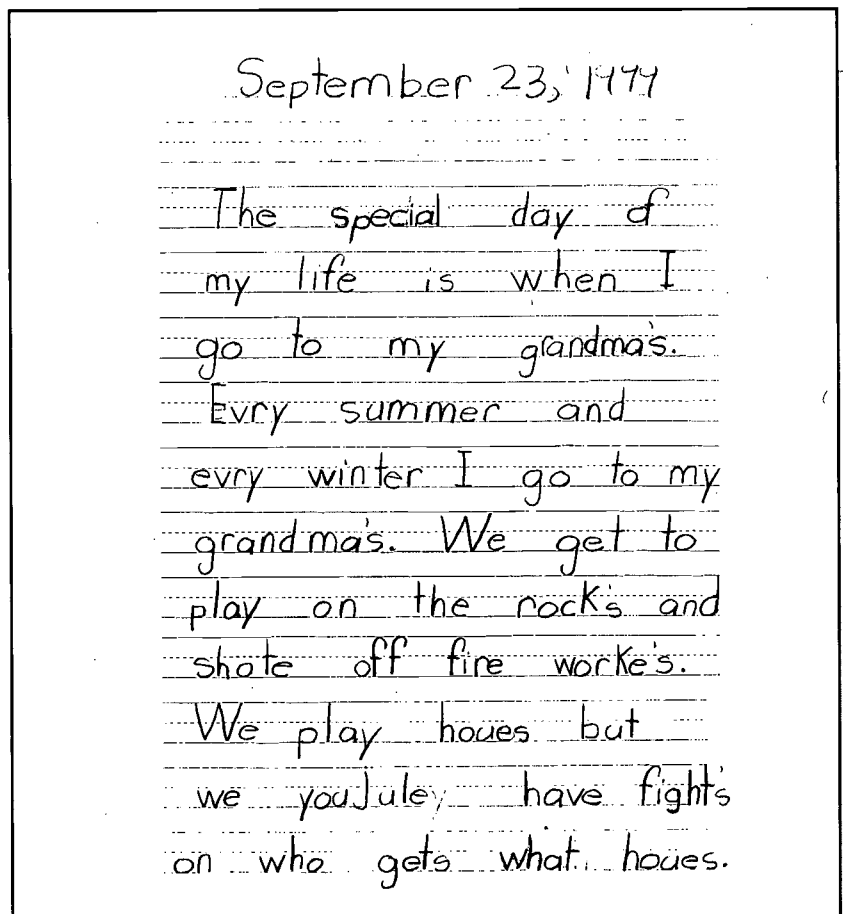 September 23, 1999
The special day of
my life is when I
go to my grandma's.
Evry summer and
evry winter I go to my
grandma's. We get to
play on the rock's and
shote off fire worke's.
We play houes but
we youJuley have fight's
on who gets what houes.